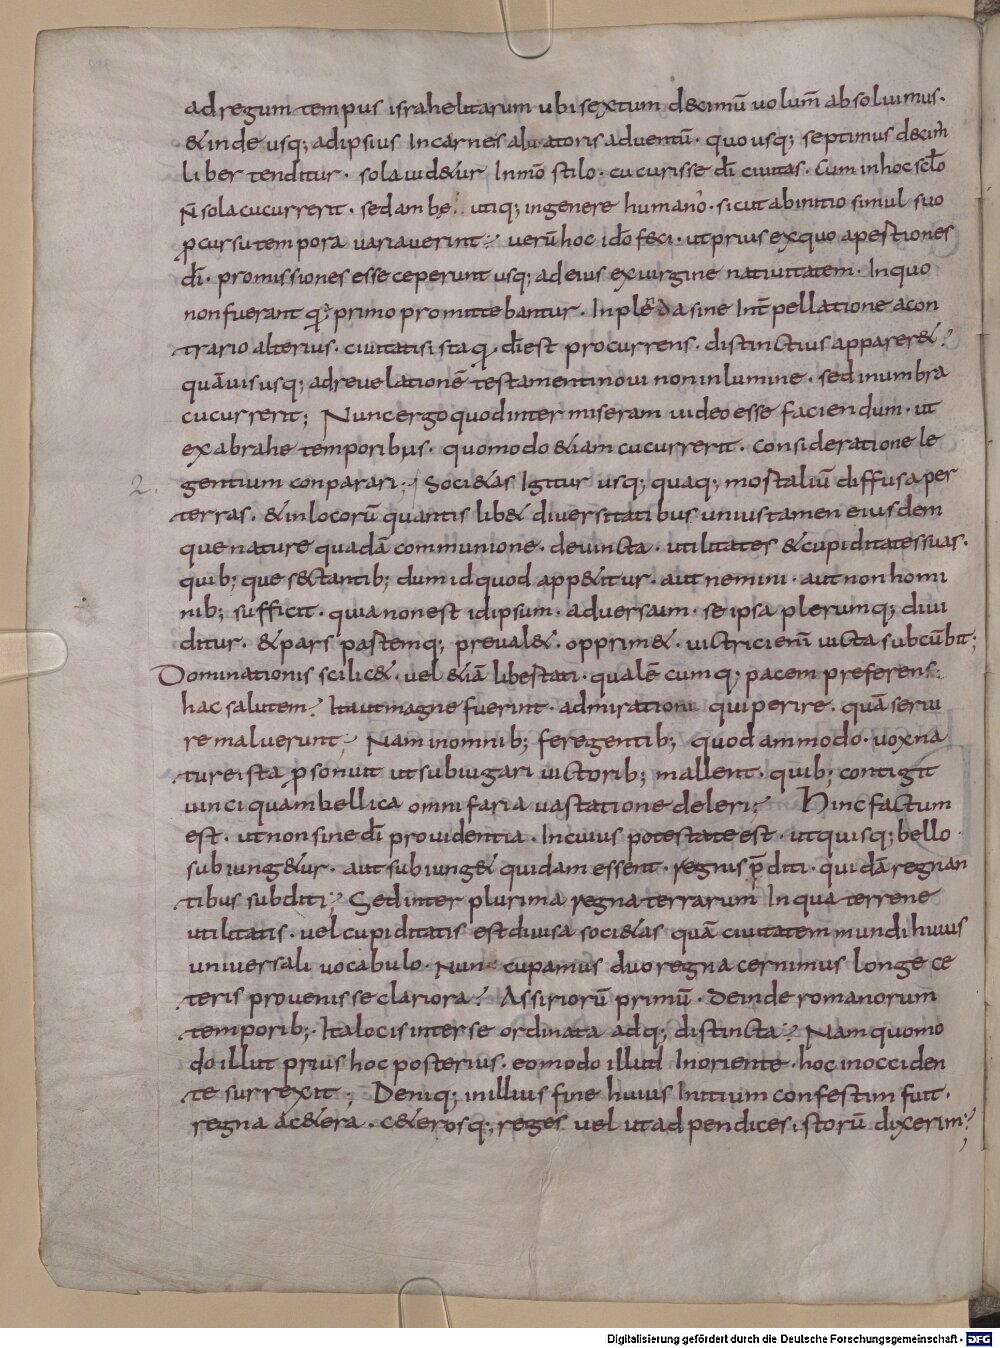 ad regum tempus israhelitarum ubi sextum decimū volum̄ absoluimus.
& inde usq; ad ipsius Incarne saluatoris aduentū. quousq; septimus decim̄
liber tenditur. sola uid&ur In m̄o stilo. cucurisse dī ciuitas. Cum in hoc sclō
n̄ sola cucurrerit. sed ambe utiq; in genere humano. sicut ab initio simul suo
ꝓcursu tempora uariauerint; uerū hoc idō feci. ut prius ex quo apertiones
dī. promissiones esse ceperunt usq; ad eius ex uirgine natiuitatem. In quo
non fuerant q̨ primo promittebantur. Inplēda sine Int̄pellatione a con
trario alterius. ciuitatis ista q̨. dī est procurrens. distinctius apparer&?
quāuis usq; ad reuelationē testamenti noui non in lumine. sed in umbra
cucurrerit; Nunc ergo quod inter miseram uideo esse faciendum. ut
ex abrahe temporibus. quomodo &iam cucurrerit. consideratione le
2. gentium conparari; Soci&as Igitur usq; quaq; mostaliū diffusa per
terras. & in locorū quantis lib& diuersitatibus unius tamen eiusdem
que nature quadā communione. deuincta. utilitates & cupiditates suas.
quib; que s&ctantib; dum id quod app&itur. aut nemini. aut non homi
nib; sufficit. quia non est id ipsum. aduersum. se ipsa plerumq; diui
ditur. & pars partemq; preual&. opprim&. uictrici enī uicta subcūbit;
Dominationis scilic&. uel &iā libertati. qualē cumq; pacem preferens
hac salutem? Ita ut magne fuerint. admirationi qui perire. quā serui
re maluerunt; Nam in omnib; fere gentib; quodammodo. uox na
ture ista ꝑsonuit ut subiugari uictorib; mallent. quib; contigit
uinci quam bellica omnifaria uastatione deleri; Hinc factum
est. ut non sine dī prouidentia. In cuius potestate est. ut quisq; bello.
subiung&ur. aut subiung& quidam essent. regnis p̄diti. quidā regnan
tibus subditi; Sed inter plurima regna terrarum In qua terrene
utilitatis. uel cupiditatis est diuisa soci&as quā ciuitatem mundi huius
uniuersali uocabulo. Nuncupamus duo regna cernimus longe ce
teris prouenisse clariora? Assiriorū primū. deinde romanorum
temporib;. Ita locis inter se ordinata adq; distincta? Nam quomo
do illut prius hoc posterius. eo modo illud In oriente. hoc in occiden
te surrexit; Deniq; in illius fine huius Initium confestim fuit.
regna ac&era. c&erosq; reges uel ut adpendices istorū dixerim?
Digitalisierung gefördert durch die Deutsche Forschungsgemeinschaft · DFG